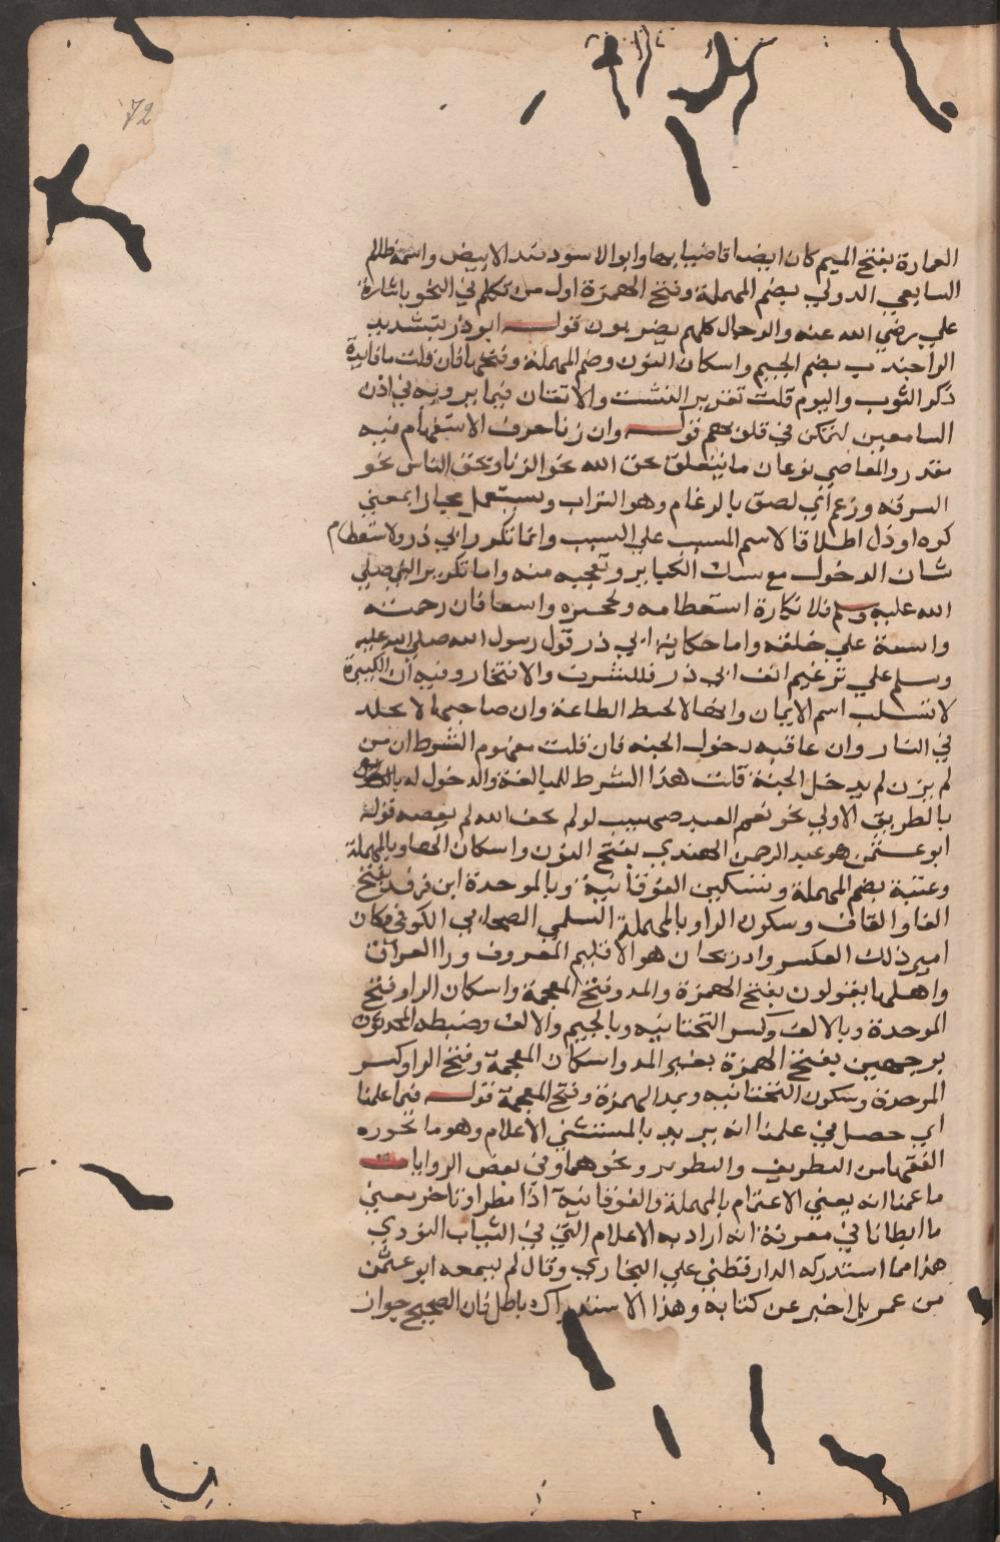 72
العمارة بفتح الميم كان ايضا قاضيا بها وابو الاسود ضد الابيض واسمه ظالم
السابعي الدولي بضم المهملة وفتح الهمزة اول من تكلم في النحو باشارة
علي رضي الله عنه والرجال كلهم بصريون قوله ابو ذر بتشديد
الرا جندب بضم الجيم واسكان النون وضم المهملة وفتحها فان قلت ما فايدة
ذكر الثوب والنوم قلت تقرير التثبت والاتقان فيما يرويه في اذن
السامعين ليتمكن في قلوبهم قوله وان زنا حرف الاستفهام فيه
مقدر والمعاصي نوعان ما يتعلق بحق الله نحو الزنا وبحق الناس نحو
السرقه ورغم اي لصق بالرغام وهو التراب ويستعمل مجازا بمعني
كره او ذل اطلاقا لاسم السبب علي المسبب واما تكرر ابي ذر ولاستعظام
شان الدخول مع سبك الكباير وتعجبه منه واما تكرير النبي صلي
الله عليه وسلم فلانكارة استعظامه وتحجيره واسعا فان رحمته
واسعة علي خلقه واما حكاية ابي ذر قول رسول الله صلي الله عليه
وسلم علي ترغيم انف ابي ذر فللتشرف والافتخار وفيه ان الكبيرة
لا تسلب اسم الايمان وانها لا تحبط الطاعة وان صاحبها لا يخلد
في النار وان عاقبه دخول الجنه فان قلت مفهوم الشرط ان من
لم يزن لم يدخل الجنة قلت هذا الشرط للمبالغة والدخول له
بالطريق الاولي نحو نعم العبد صهيب لو لم يخف الله لم يعصه قوله
ابو عثمن هو عبد الرحمن النهدي بفتح النون واسكان الها وبالمهملة
وعتبة بضم المهملة وتسكين الفوقانية وبالموحدة ابن فرقد بفتح
الفا والقاف وسكون الرا وبالمهملة السلمي الصحابي الكوفي وكان
امير ذلك العكسر وادربيجان هو الاقليم المعروف ورا العراق
واهلها يقولون بفتح الهمزة والمد وفتح المعجمة واسكان الرا وفتح
الموحدة وبالالف وكسر التحتانيه وبالجيم والالف وضبطه المحدثون
بوجهين بفتح الهمزة بغير المد واسكان المعجمة وفتح الرا وكسر
الموحدة وسكون التحتانيه وبمد الهمزة وفتح المعجمة قوله فيما علمنا
اي حصل في علمنا انه يريد بالمستثني الاعلام وهو ما يجوزه
الفقها من التطريف والتطريز ونحوهما وفي بعض الروايات
ما عتمنا انه يعني الاعتام بالمهملة والفوقانية اذا ابطا وتاخر يعني
ما ابطانا في معرفة انه اراد به الاعلام التي في الثياب النووي
هذا مما استدركه الدارقطني علي البخاري وقال لم يسمعه ابو عثمن
من عمر بل اخبر عن كتابه وهذا الاستدراك باطل فان الصحيح جواز